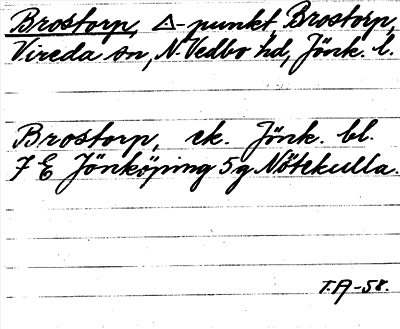 Brostorp, △-punkt, Brostorp,
Vireda sn, N. Vedbo hd, Jönk. l.
Brostorp, ek. Jönk. bl.
7 E Jönköping 5g Nötekulla.
T.A-58.